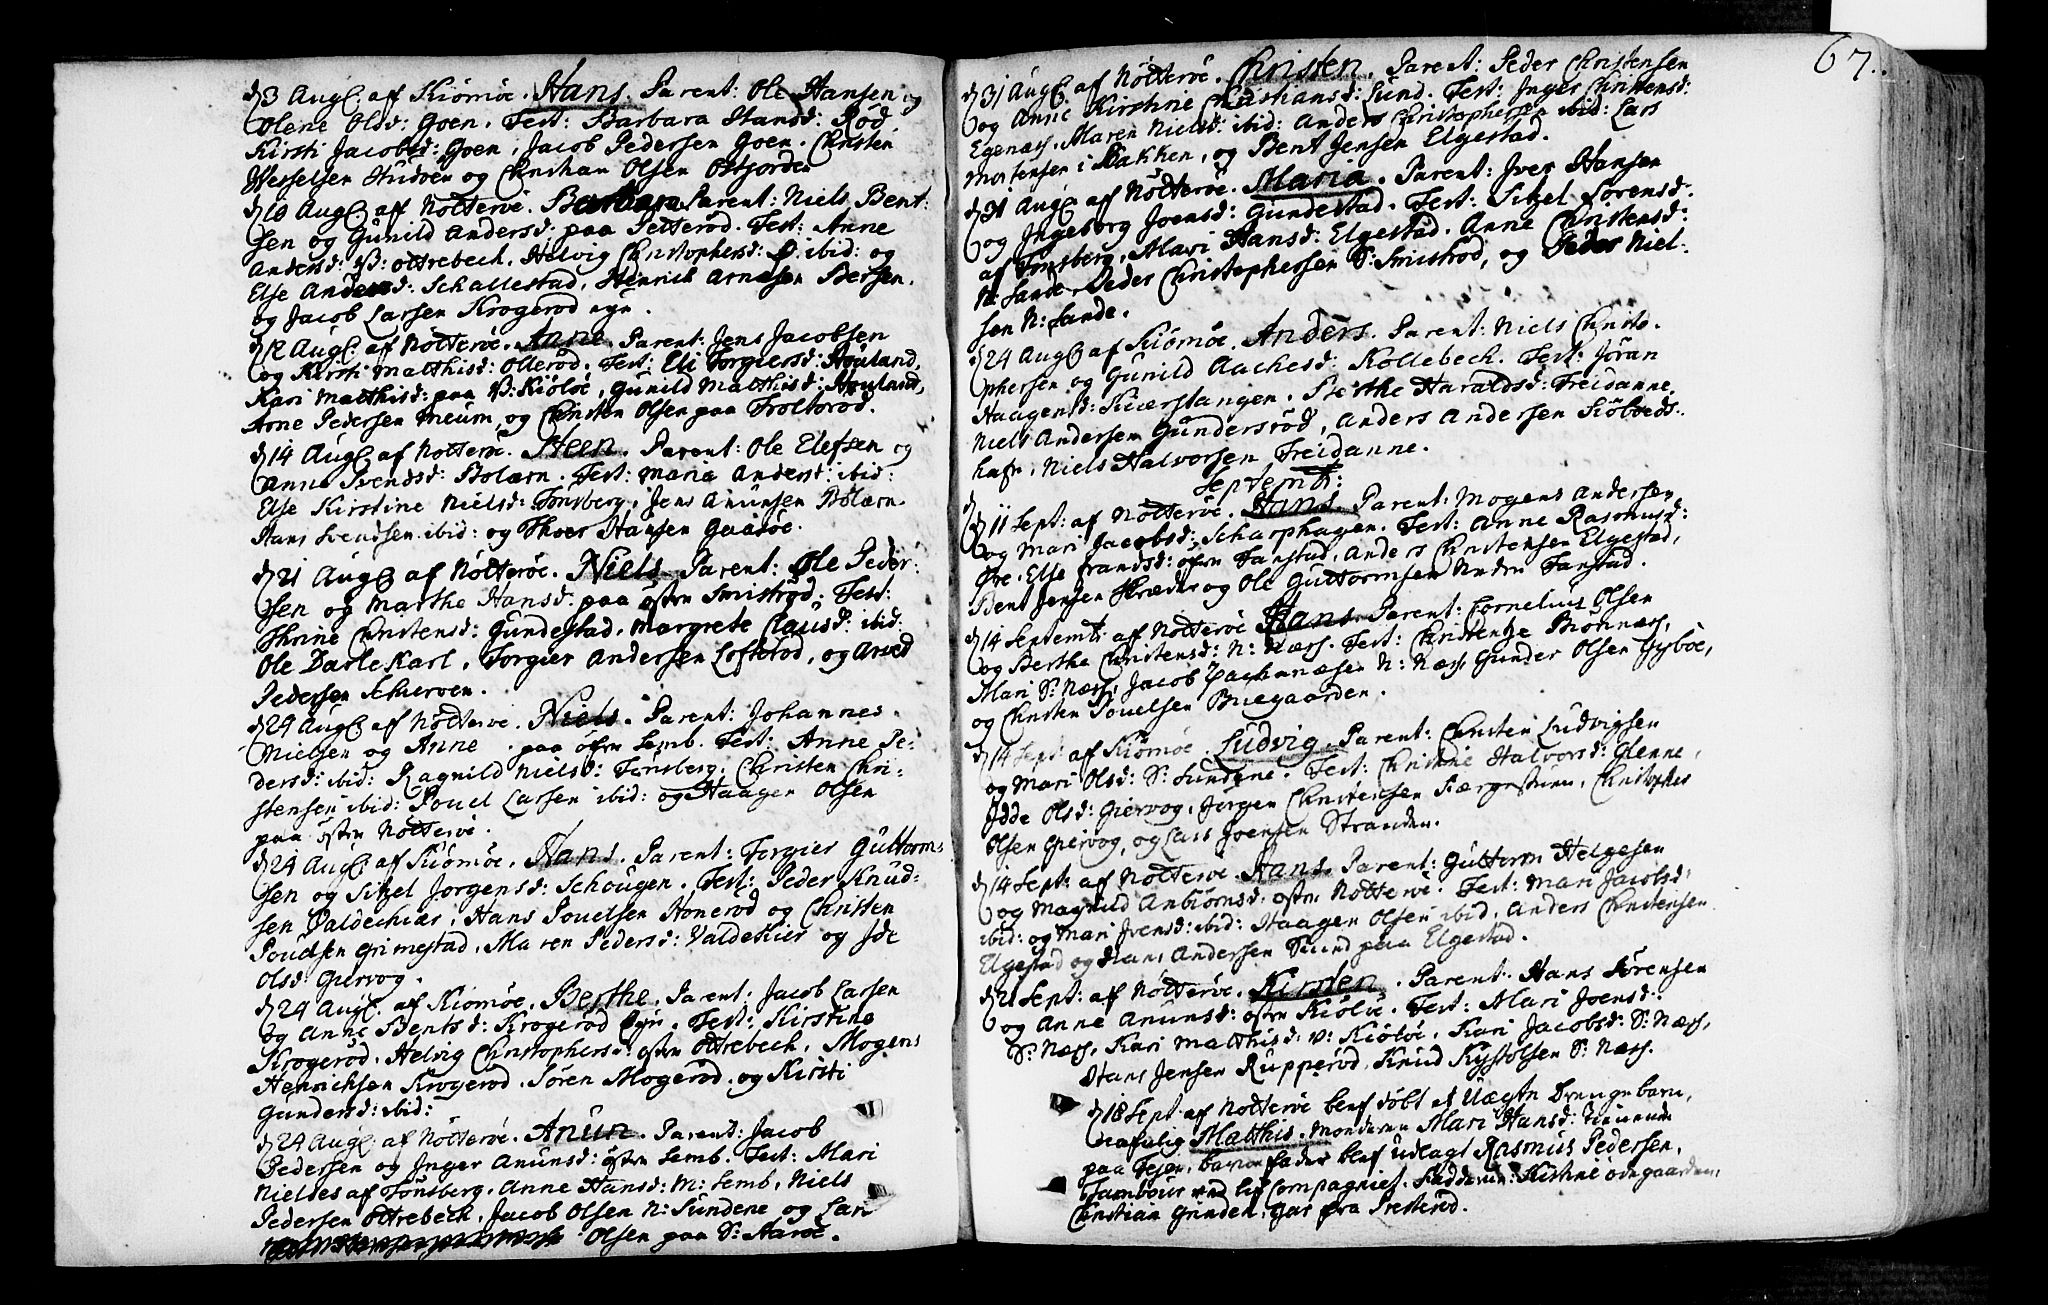 d 3 Aug: af Kiömöe. Hans. Parent: Ole Hansen og
Olene Olsd: Goen. Test: Barbara Hansd: Röd
Kirsti Jacobsd: Goen, Jacob Pedersen Goen. Christen
Wesselsen Hudöen og Christian Olsen Östjorden
d 10 Aug: af Nötteröe. Barbara Parent: Niels Bent:
sen og Gunild Andersd: paa Petteröd. Test: Anne
Andersd: V: Ottrebech, Helvig Christophersd: Ö: ibid: og
Else Andersd: Schallestad, Henrich Arnesen Bersen.
og Jacob Larsen Krogeröd eye.
d 12 Aug: af Nötteröe. Anne Parent: Jens Jacobsen
og Kirsti Matthisd: Olleröd. Test: Eli Torgiersd: Houland,
Kari Matthisd: paa V: Kiölöe, Gunild Matthisd: Houland,
Arne Pedersen Meum, og Christen Olsen paa Trolteröd.
d 14 Aug: af Nötteröe. Steen. Parent: Ole Elefsen og
Anne Svendsd: Bolærn. Test: Maria Andersd: ibid:
Else Kirstine Nielsd: Tönsberg, Jens Anunsen Bolærn.
Hans Svendsen ibid: og Thoer Hansen Gaasöe.
d 21 Aug: af Nötteröe. Niels Parent: Ole Peder:
sen og Marthe Hansd: paa östre Smiströd. Test:
Thrine Christensd: Gundestad, Margrete Clausd: ibid:
Ole Darle Karl. Torgier Andersen Lofteröd, og Arved
Pedersen Schierven.
d 24 Aug: af Nötteröe. Niels. Parent: Johannes
Nielsen og Anne . paa öfre Semb. Test: Anne Pe:
dersd: ibid: Ragnild Nielsd: Tönsberg, Christen Chri:
stensen ibid: Povel Larsen ibid: og Haagen Olsen
paa östre Nötteröe.
d 24 Aug: af Kiömöe. Hans. Parent: Torgier Guttorm:
sen og Sitzel Jörgensd: Schougen. Test: Peder Knud:
sen Valdechiær, Hans Povelsen Honeröd og Christen
Povelsen Grimestad, Maren Pedersd: Valdekier og Ide
Olsd: Giervog.
d 24 Aug: af Kiömöe. Berthe. Parent: Jacob Larsen
og Anne Bentsd: Krogeröd Eye. Test: Kirstine
Krogeröd. Helvig Christophersd: östre Ottrebech, Mogens
Henrichsen Krogeröd. Sören Mogeröd. og Kirsti
Gundersd: ibid:
d 24 Aug: af Nötteröe. Anun. Parent: Jacob
Pedersen og Inger Anunsd: östre Semb. Test: Mari
Nieldes af Tönsberg. Anne Hansd: M: Semb, Niels
Pedersen Ottrebech, Jacob Olsen N: Sundene og Lars
Olsen paa S: Aaröe.
67.
d 31 Aug: af Nötteröe. Christen. Parent: Peder Christensen
og Anne Kirstine Christiansd: Lund. Test: Inger Christensd:
Egenæs. Maren Nielsd: ibid: Anders Christophersen ibid: Lars
Mortensen i Bakken, og Bent Jensen Elgestad.
d 31 Aug: af Nötteröe. Maria. Parent: Iver Hansen
og Ingeborg Joensd: Gundestad. Test: Sitzel Sorensd:
af Tönsberg, Mari Hansd: Elgestad. Anne Christensd:
N: Sande. Peder Christophersen S: Smiströd, og Peder Niel:
sen N: Sande.
d 24 Aug: af Kiömöe. Anders. Parent: Niels Christo:
phersen og Gunild Aachesd: Kollebech. Test: Jöran
Haagensd: Kuerstangen. Berthe Haraldsd: Treidanne,
Niels Andersen Gundersröd, Anders Andersen Kiöbveds:
hafn, Niels Halvorsen Treidanne.
Septemb:
d 11 Sept: af Nötteröe. Hans. Parent: Mogens Andersen
og Mari Jacobsd: Scharphagen. Test: Anne Rasmusd:
Öre. Else Frandsd: öfre Fanstad, Anders Christensen Elgestad,
Bent Jensen Skræder og Ole Guttormsen Nedre Fanstad.
d 14 Septemb: af Nötteröe Hans. Parent: Cornelius Olsen
og Berthe Christensd: N: Næss. Test: Christentze Bönnæss,
Mari S: Næss, Jacob Zachariæsen N: Næss, Gunder Olsen Gyböe,
og Christen Povelsen Buegaarden.
d 14 Sept: af Kiömöe. Ludvig. Parent: Christen Ludvigsen
og Mari Olsd: S: Sundene. Test: Christine Halvorsd: Glenne,
Idde Olsd: Giervog, Jörgen Christensen Færgestuen, Christopher
Olsen Giervog, og Lars Joensen Stranden.
d 14 Sept: af Nötteröe. Hans. Parent: Guttorm Helgesen
og Magnild Anbiörnsd: östre Nötteröe. Test: Mari Jacobsd:
ibid: og Mari Ivensd: ibid: Haagen Olsen ibid. Anders Christensen
Elgestad og Hans Andersen Suend paa Elgestad.
d 21 Sept: af Nötteröe. Kirsten. Parent: Hans Sörensen
og Anne Anunsd: östre Kiölöe. Test: Mari Joensd:
S: Næss, Kari Matthisd: V: Kiölöe, Kari Jacobsd: S: Næss,
Hans Jensen Rupperöd, Knud Kystolsen S: Næss.
d 18 Sept: af Nötteröe blef döbt et Uægte Drengebarn,
nafnlig Matthis. Moderen Mari Hansd: tienende
paa Teien, barnefader blef udlagt Rasmus Pedersen,
Tambour ved Lif Compagniet. Fadderne: Kirstine Ödegaarden,
Christian Grinden, fra Presteröd.